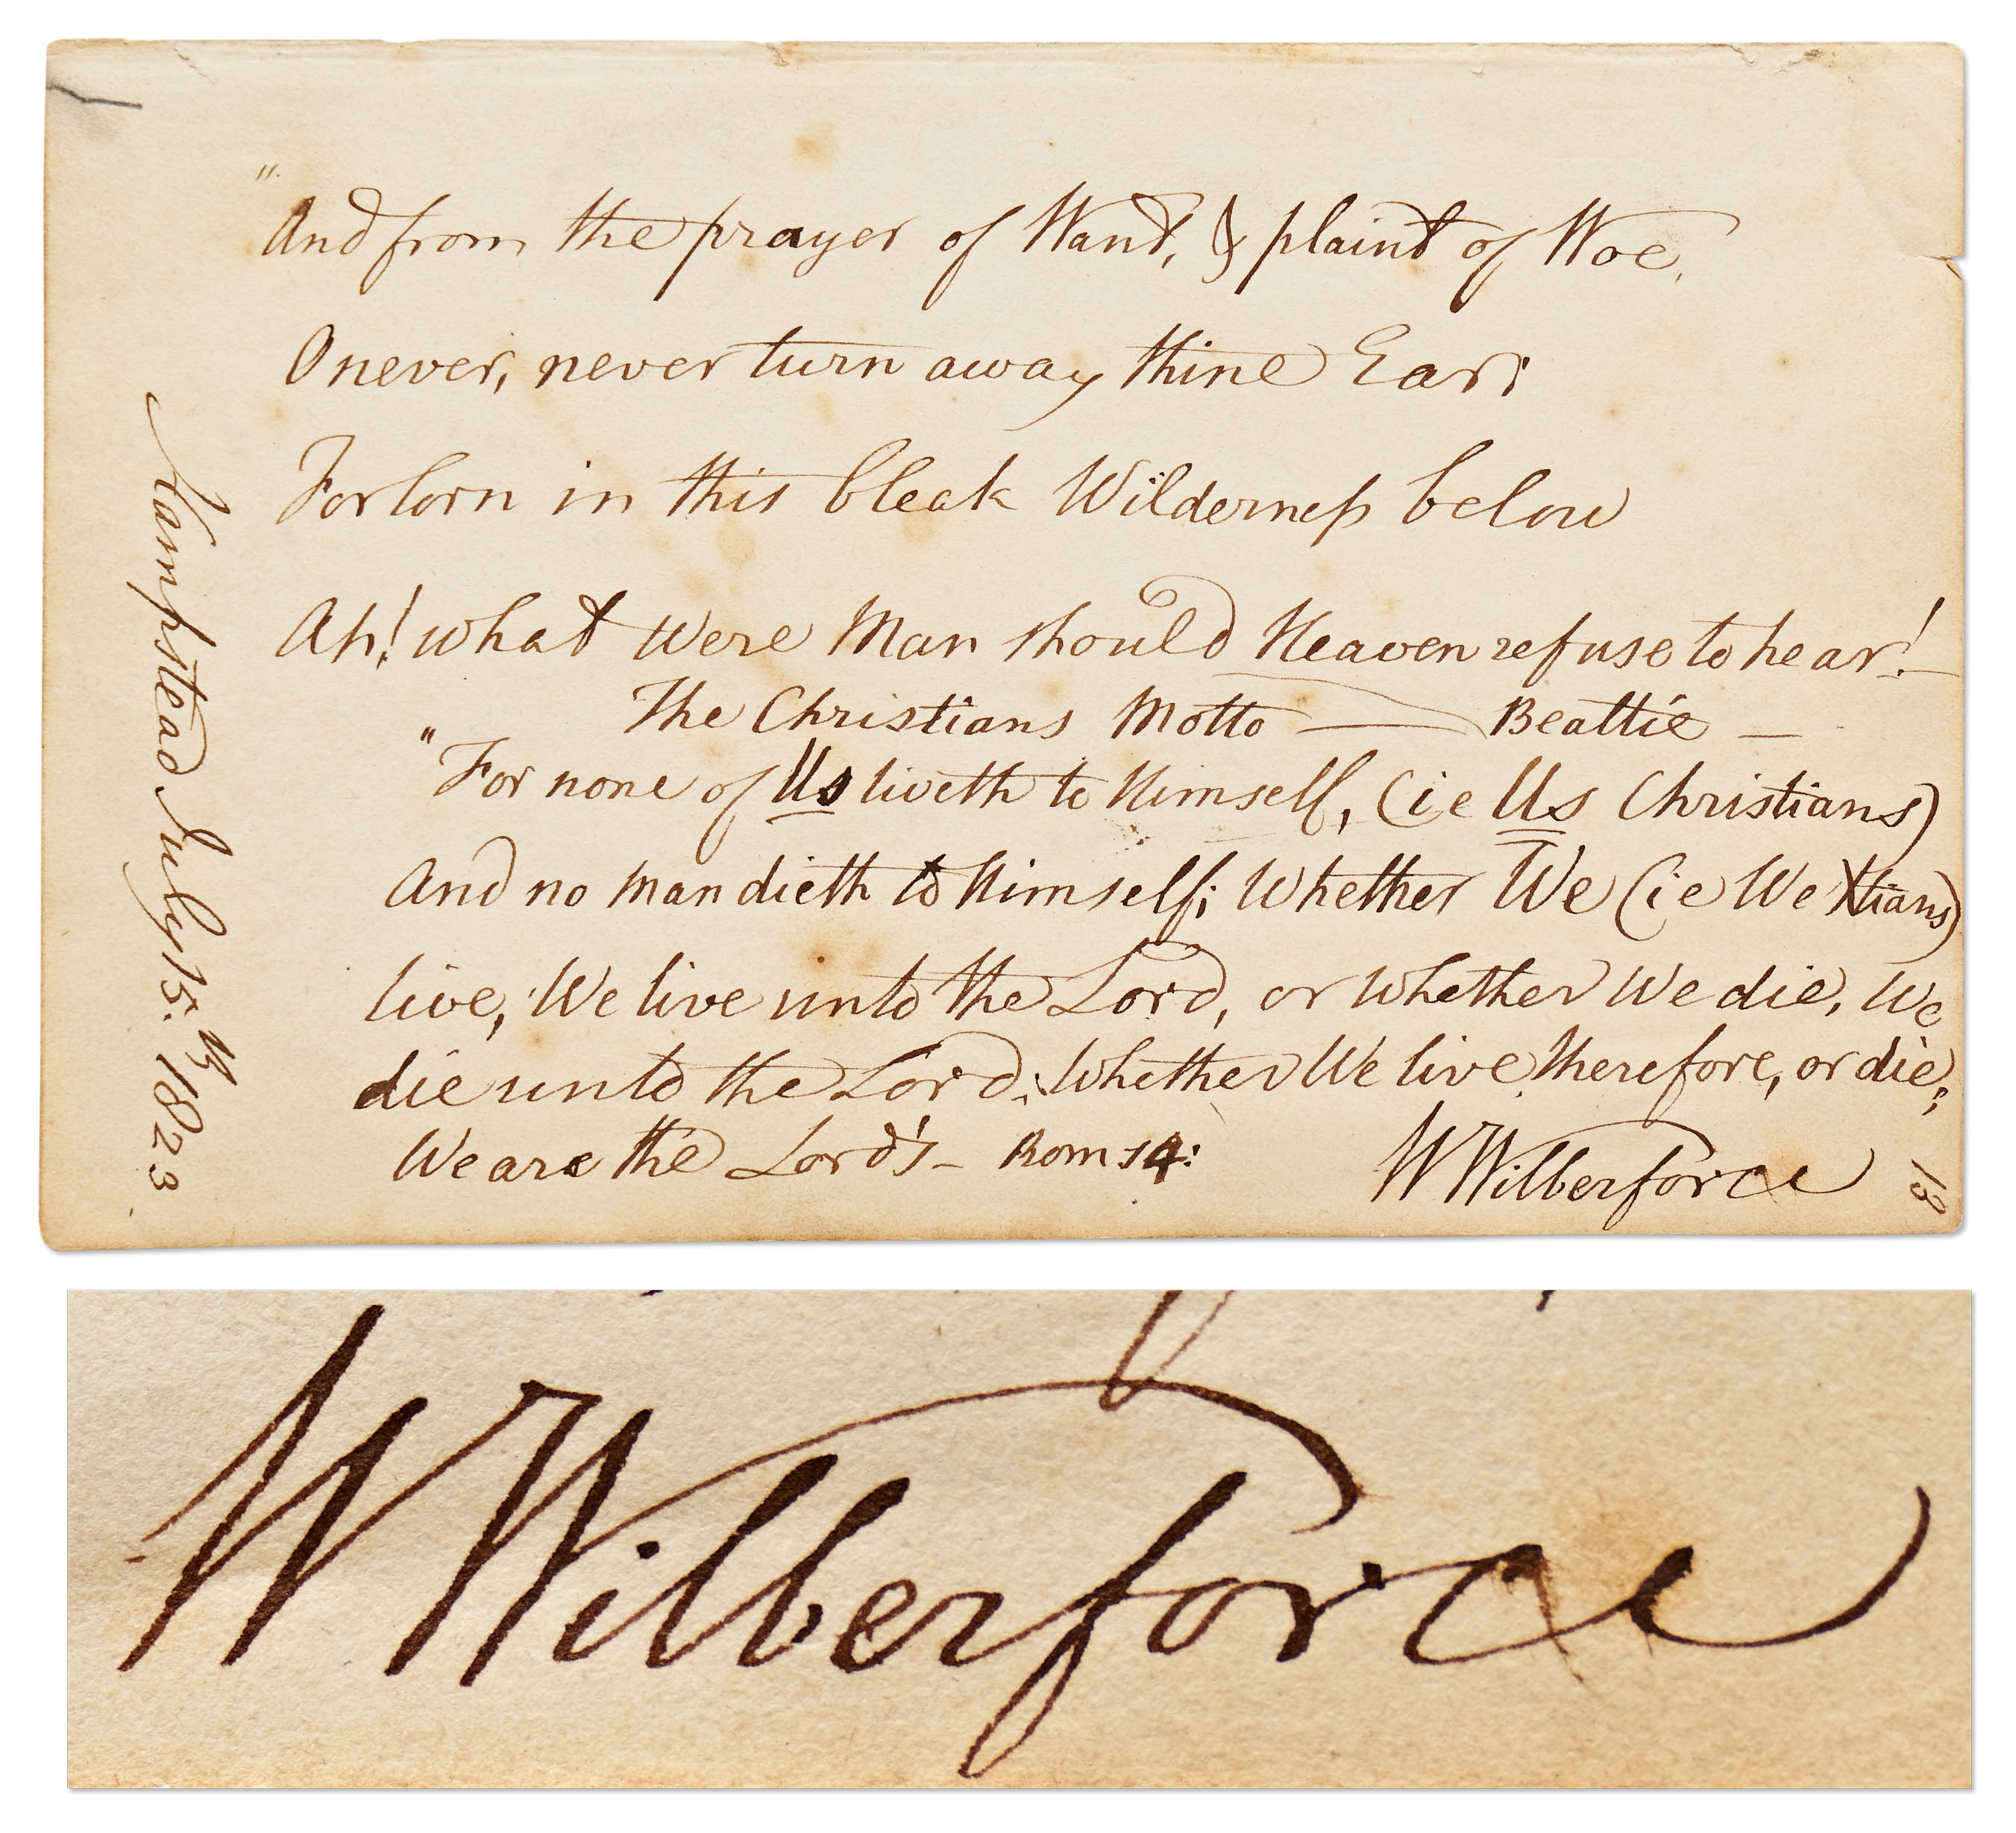 "And from the prayer of Want, & plaint of Woe,
O never, never turn away thine Ear;
Forlorn in this bleak Wilderness below
Ah! what were Man should Heaven refuse to hear!—
The Christians Motto — Beattie —
"For none of Us liveth to Himself, (ie Us Christians)
And no man dieth to Himself; Whether We (ie We Xtians)
live, We live unto the Lord, or whether We die, We
die unto the Lord: Whether We live therefore, or die,
We are the Lord's — Rom 14:
W Wilberforce
Hampstead July 15.th 1823
W Wilberforce